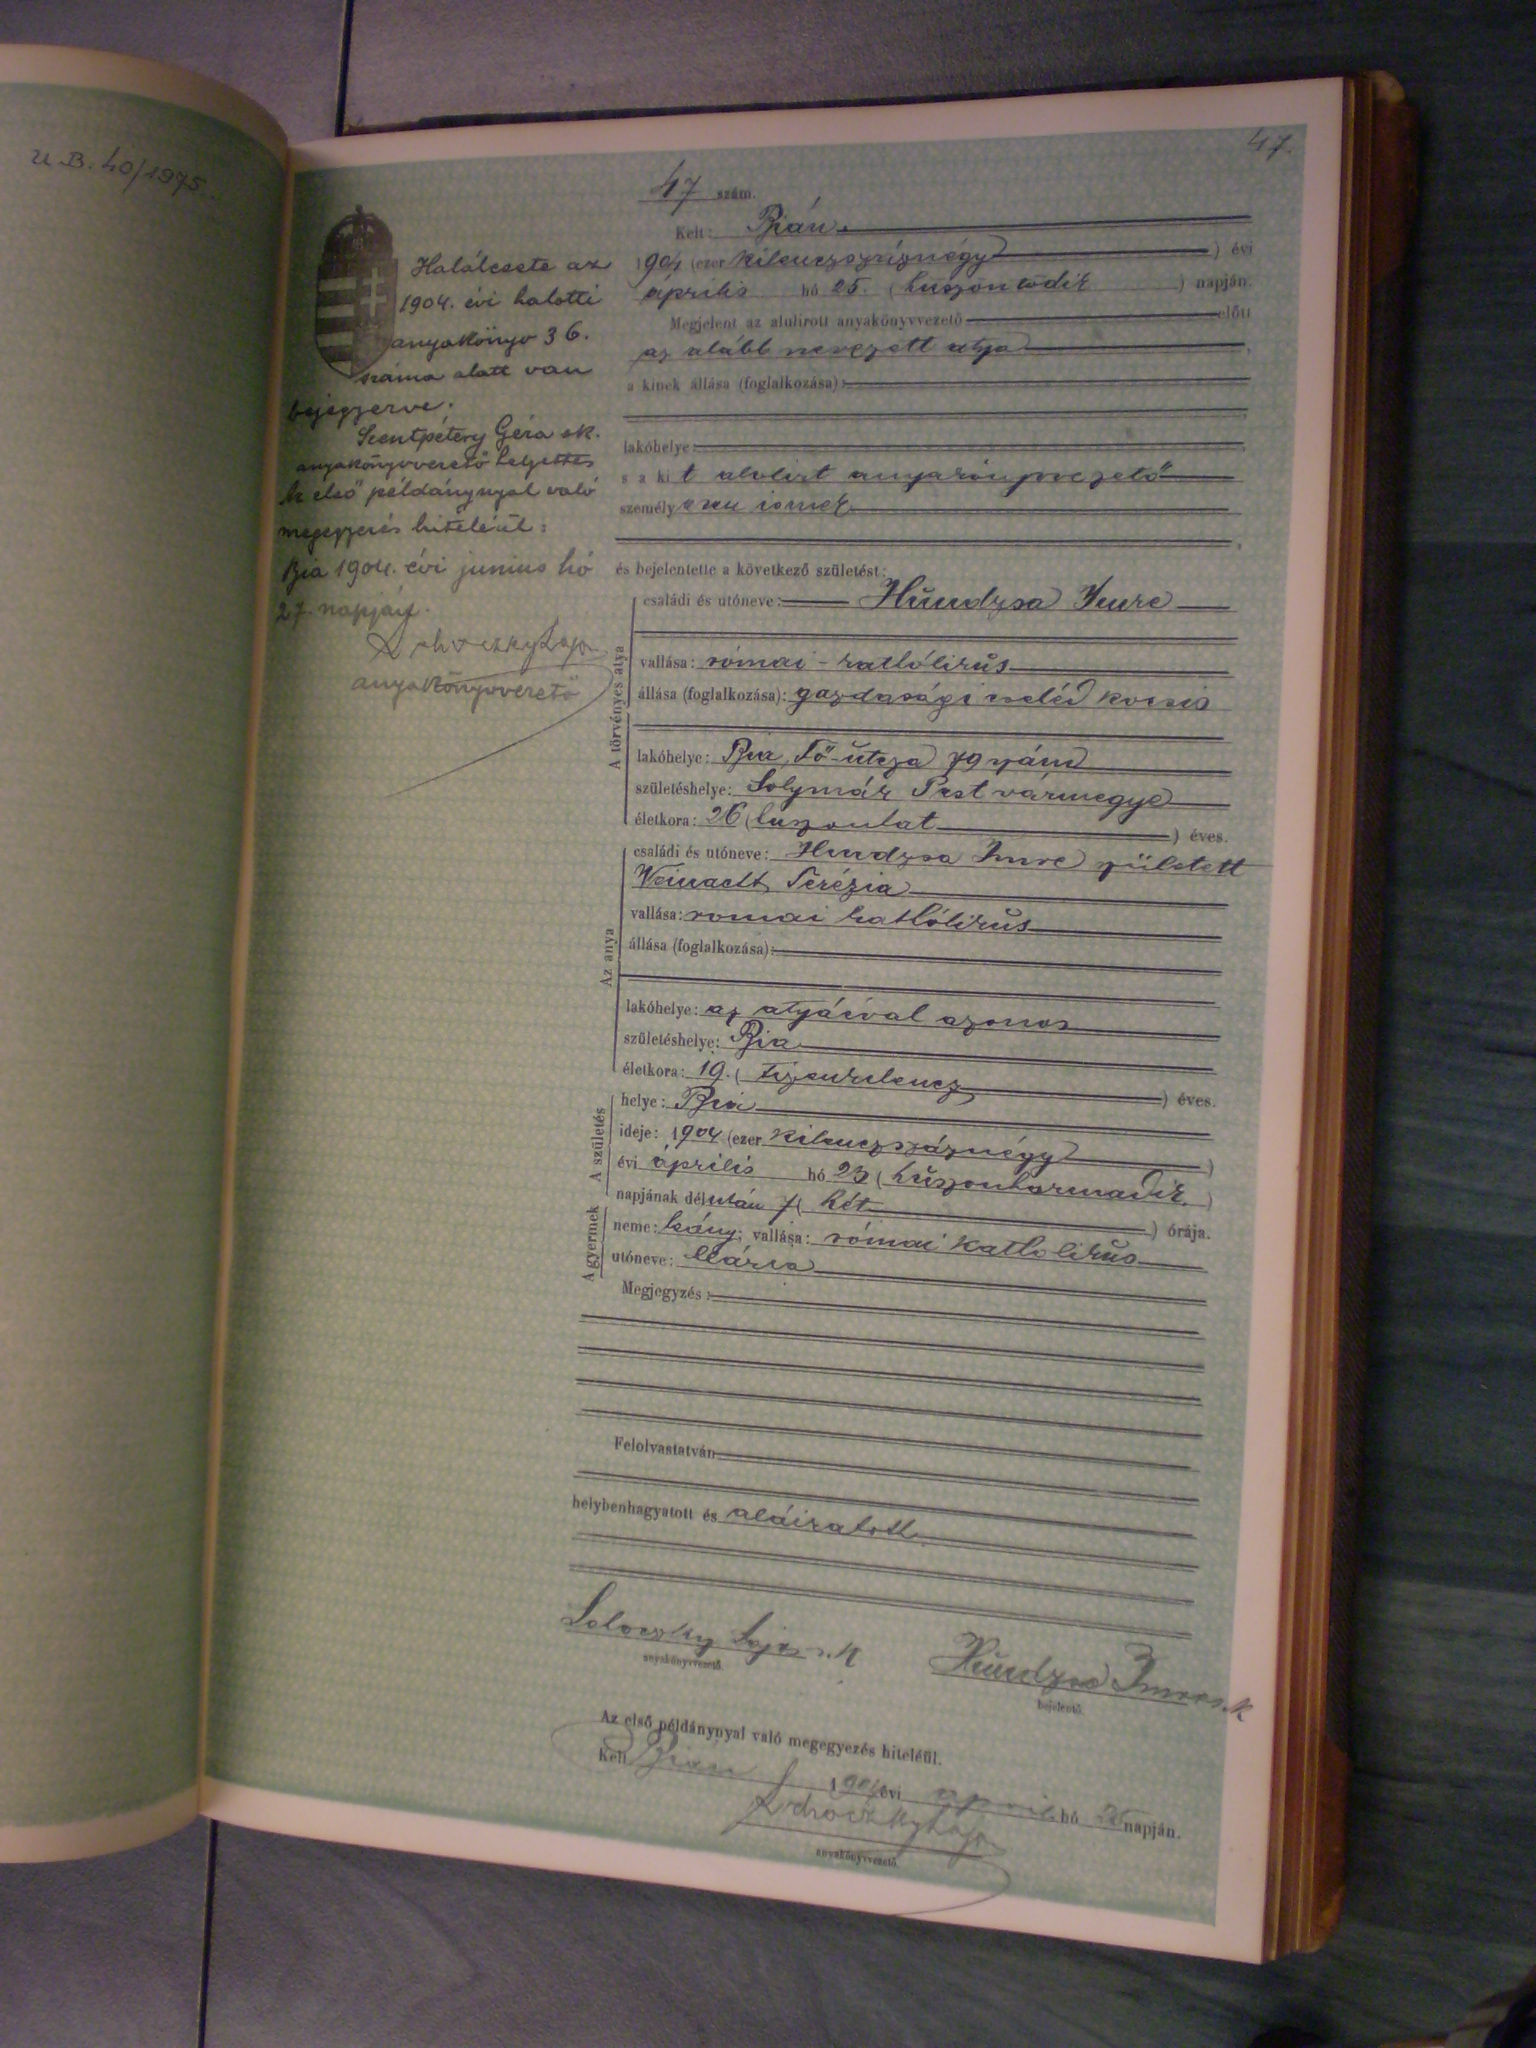 U.B. 40/1975.
47.
47 szám.
Kelt: Bián.
1904 (ezer kilenczszáznégy) évi
április hó 25. (huszonötödik) napján.
Megjelent az alulirott anyakönyvvezető előtt
az alább nevezett atya
a kinek állása (foglalkozása):
lakóhelye:
s a kit alulirt anyakönyvvezető
személyesen ismer
és bejelentette a következő születést:
Halálesete az
1904. évi halotti
anyakönyv 36.
száma alatt van
bejegyezve.
Szentpétery Géza sk.
anyakönyvvezető helyettes
Az első példánynyal való
megegyezés hiteléül:
Bia 1904. évi junius hó
27. napján.
anyakönyvvezető
A törvényes atya
családi és utóneve: Hundzsa Imre
vallása: római-katholikus
állása (foglalkozása): gazdasági cseléd kocsis
lakóhelye: Bia, Fő-utcza 79 szám
születéshelye: Solymár Pest vármegye
életkora: 26 (huszonhat) éves.
Az anya
családi és utóneve: Hundzsa Imre született
Weinacht Terézia
vallása: romai katholikus
állása (foglalkozása):
lakóhelye: az atyáéval azonos
születéshelye: Bia
életkora: 19. (tizenkilencz) éves.
A születés
helye: Bia
ideje: 1904 (ezer kilenczszáznégy)
évi április hó 23 (huszonharmadik)
napjának délután 7 (hét) órája.
A gyermek
neme: leány; vallása: római katholikus
utóneve: Mária
Megjegyzés:
Felolvastatván
helybenhagyatott és aláiratott.
Lajos s.k
anyakönyvvezető.
Hundzsa Imre s.k
bejelentő.
Az első példánynyal való megegyezés hiteléül.
Kelt Bián 1904 évi április hó 25 napján.
anyakönyvvezető.